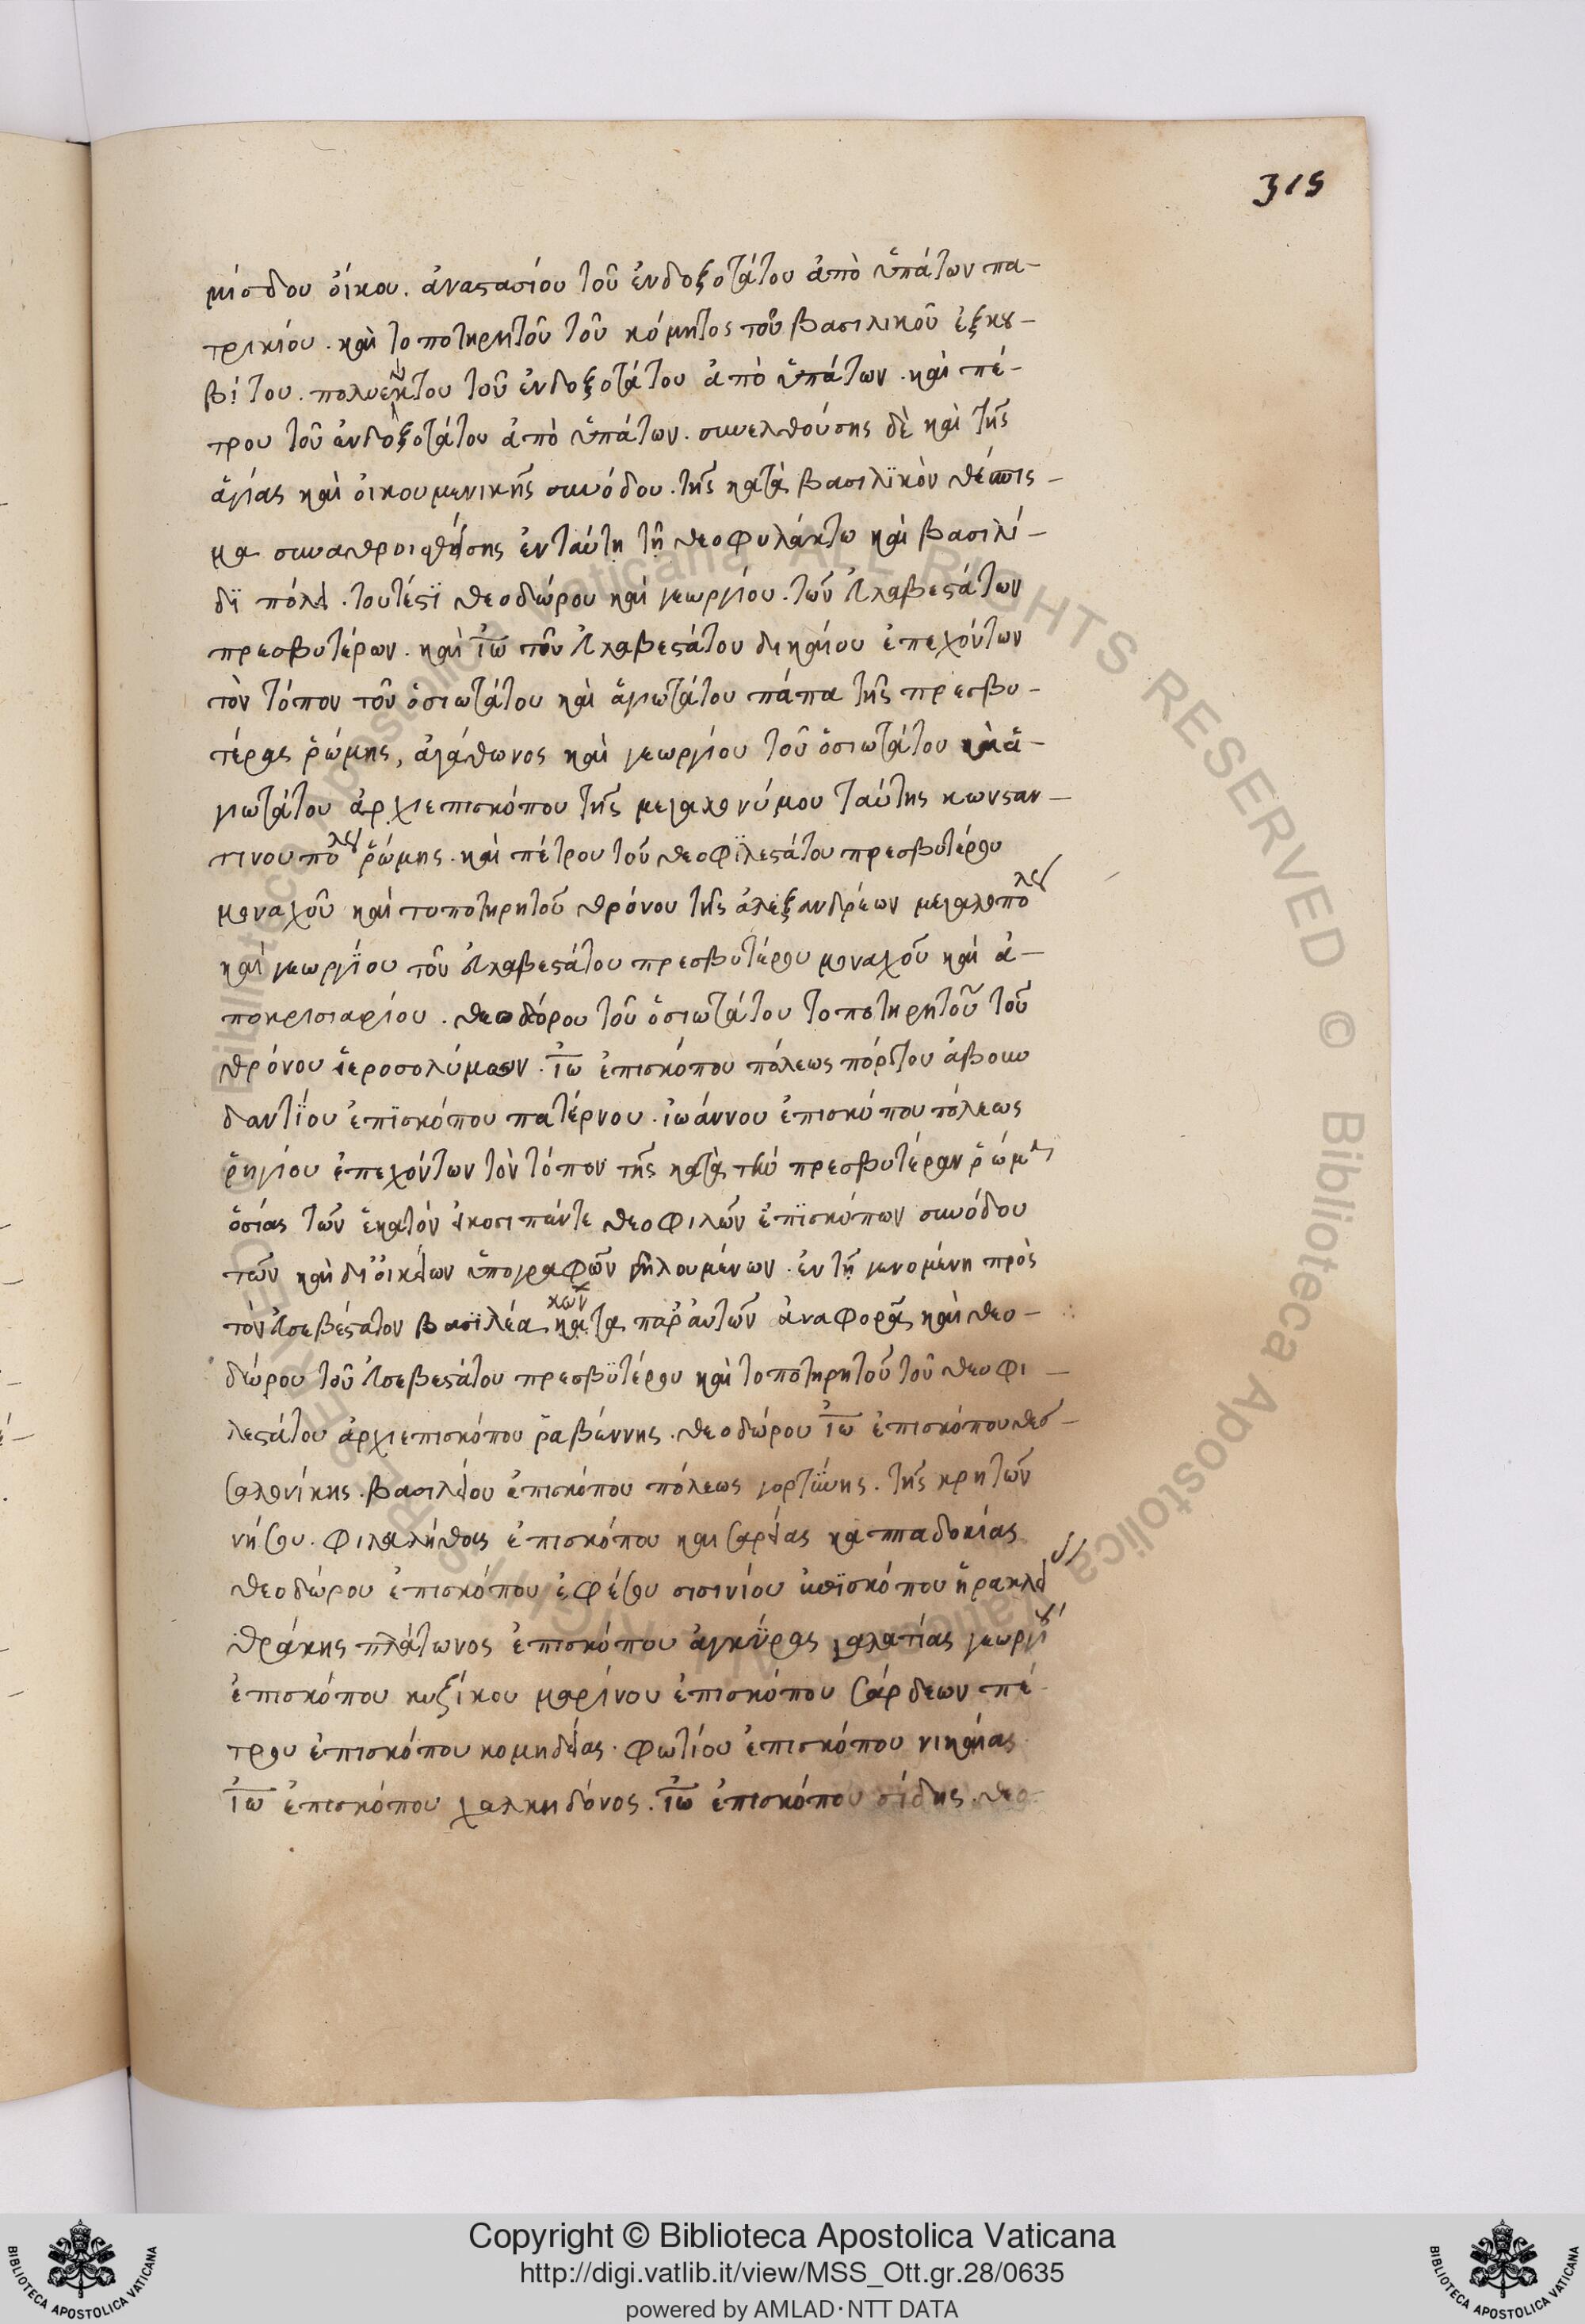 315
μίσδου οἴκου. ἀναστασίου τοῦ ἐνδοξοτάτου ἀπὸ ὑπάτων πα-
τρικίου. καὶ τοποτηρητοῦ τοῦ κόμητος τοῦ βασιλικοῦ ἐξκου-
βίτου. πολυεύκτου τοῦ ἐνδοξοτάτου ἀπὸ ὑπάτων. καὶ πέ-
τρου τοῦ ἐνδοξοτάτου ἀπὸ ὑπάτων. συνελθούσης δὲ καὶ τῆς
ἁγίας καὶ οἰκουμενικῆς συνόδου. τῆς κατὰ βασιλϊκὸν θέσπισ-
μα συναθροισθείσης ἐν ταύτη τῆ θεοφυλάκτω καὶ βασιλί-
δϊ πόλει. τουτέστϊ θεοδώρου καὶ γεωργίου. τῶν εὐλαβεστάτων
πρεσβυτέρων. καὶ ἰω τοῦ εὐλαβεστάτου διηκαίου ἐπεχόντων
τὸν τόπον τοῦ ὁσιωτάτου καὶ ἁγιωτάτου πάπα τῆς πρεσβυ-
τέρας ῥώμης, ἀγάθωνος καὶ γεωργίου τοῦ ὁσιωτάτου καὶ ἁ-
γιωτάτου ἀρχιεπισκόπου τῆς μεγαλωνύμου ταύτης κωνσταν-
τινουπολεως ῥώμης. καὶ πέτρου τοῦ θεοφϊλεστάτου πρεσβυτέρου
μοναχοῦ καὶ τοποτηρητοῦ θρόνου τῆς ἀλεξανδρέων μεγαλοπολεως
καὶ γεωργίου τοῦ εὐλαβεστάτου πρεσβυτέρου μοναχοῦ καὶ ἀ-
ποκρισιαρίου. θεοδόρου τοῦ ὁσιωτάτου τοποτηρητοῦ τοῦ
θρόνου ἱεροσολύμων. ἰω ἐπισκόπου πόλεως πόρτου ἀβουν
δαντίου ἐπϊσκόπου πατέρνου. ἰωάννου ἐπισκόπου πόλεως
ῥηγίου ἐπεχόντων τὸν τόπον τῆς κατὰ τὴν πρεσβυτέραν ῥώμην
ὁσίας τῶν ἑκατὸν εἰκοσιπέντε θεοφιλῶν ἐπϊσκόπων συνόδου
τῶν καὶ δι' οἰκείων ὑπογραφῶν δηλουμένων. ἐν τῆ γενομένη πρὸς
τὸν εὐσεβέστατον βασϊλέα κων/ τα παρ' αὐτῶν ἀναφορᾶ καὶ θεο-
δώρου τοῦ εὐσεβεστάτου πρεσβϋτέρου καὶ τοποτηρητοῦ τοῦ θεοφι-
λεστάτου ἀρχιεπισκόπου ῥαβέννης. θεοδώρου ἰω ἐπισκόπου θεσ-
σαλονίκης. βασιλείου ἐπισκόπου πόλεως γορτϋνης. τῆς κρητῶν
νήσου. φιλαλήθους ἐπισκόπου καισαρείας καππαδοκίας
θεοδώρου ἐπισκόπου ἐφέσου σισινίου ἐπϊσκόπου ἡρακλείας
θράκης πλάτωνος ἐπισκόπου ἀγκύρας γαλατίας γεωργίου
ἐπισκόπου κυζίκου μαρίνου ἐπισκόπου σάρδεων πέ
τρου ἐπισκόπου κομηδείας. φωτίου ἐπισκόπου νικαίας
ἰω ἐπισκόπου χαλκηδόνος. ἰω ἐπισκόπου σίδης. θεο-
Copyright © Biblioteca Apostolica Vaticana
http://digi.vatlib.it/view/MSS_Ott.gr.28/0635
powered by AMLAD·NTT DATA
BIBLIOTECA APOSTOLICA VATICANA
BIBLIOTECA APOSTOLICA VATICANA